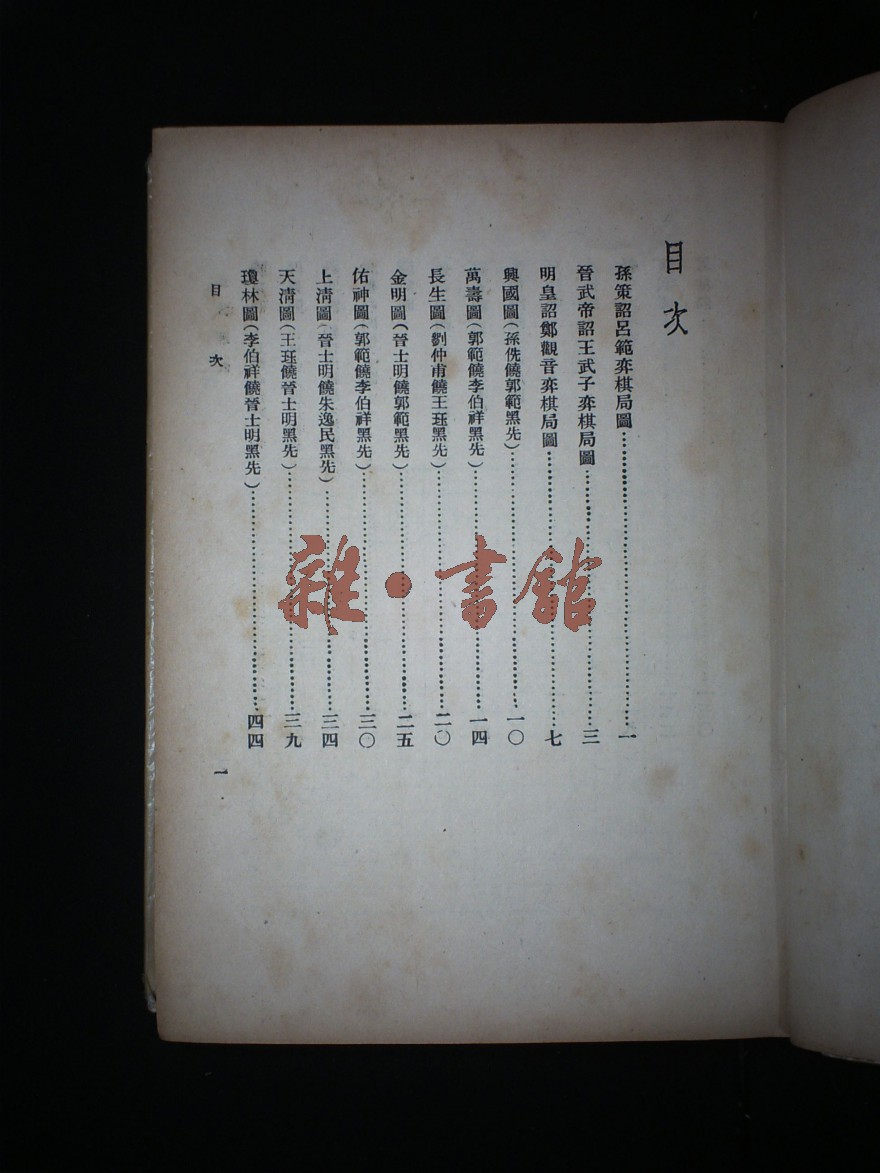 目次
孫策詔呂範弈棋局圖……一
晉武帝詔王武子弈棋局圖……三
明皇詔鄭觀音弈棋局圖……七
興國圖(孫侁饒郭範黑先)……一〇
萬壽圖(郭範饒李伯祥黑先)……一四
長生圖(劉仲甫饒王珏黑先)……二〇
金明圖(晉士明饒郭範黑先)……二五
佑神圖(郭範饒李伯祥黑先)……三〇
上清圖(晉士明饒朱逸民黑先)……三四
天清圖(王珏饒晉士明黑先)……三九
瓊林圖(李伯祥饒晉士明黑先)……四四
目次
一
雜·書館